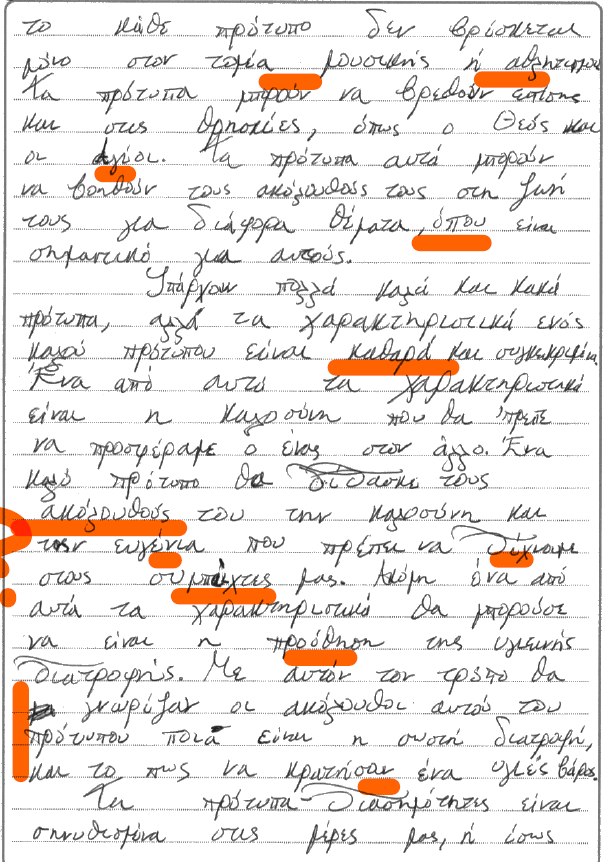 το κάθε πρότυπο δεν βρίσκεται
μόνο στον τομέα μουσικής ή αθλητισμού
Τα πρότυπα μπορούν να βρεθούν επίσης
και στις θρησκίες, όπως ο Θεός και
οι άγιοι. Τα πρότυπα αυτά μπορούν
να βοηθούν τους ακόλουθούς τους στη ζωή
τους για διάφορα θέματα, όπου είναι
σημαντικό για αυτούς.
Υπάρχουν πολλά καλά και κακά
πρότυπα, αλλά τα χαρακτηριστικά ενός
καλού πρότυπου είναι καθαρά και συγκεκριμένα.
Ένα από αυτά τα χαρακτηριστικά
είναι η καλοσύνη που θα 'πρεπε
να προσφέραμε ο ένας στον άλλο. Ένα
καλό πρότυπο θα δίδασκε τους
ακόλουθούς του την καλοσύνη και
την ευγένια που πρέπει να δίχνουμε
στους συμπάχτες μας. Ακόμη ένα από
αυτά τα χαρακτηριστικά θα μπορούσε
να είναι η προόθηση της υγιεινής
διατροφής. Με αυτόν τον τρόπο θα
γνωρίζαν οι ακόλουθοι αυτού του
πρότυπου ποιά είναι η σωστή διατροφή,
και το πως να κρατήσαν ένα υγιές βάρος.
Τα πρότυπα-διασημότητες είναι
σηνυθισμένα στις μέρες μας, ή ίσως